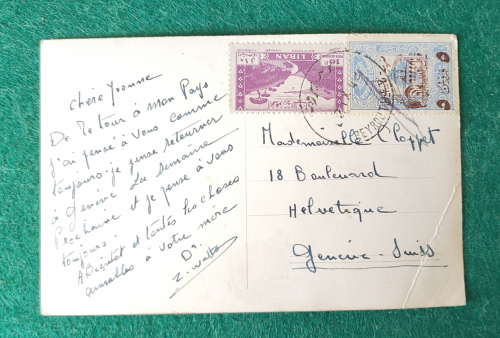 Chère Yvonne
De retour à mon Pays
j'ai pensé à vous comme
toujours. je pense retourner
à Genève la semaine
Prochaine et je pense à vous
toujours.
A Bientot et toutes les choses
aimables à votre mère
Dr.
LIBAN
10P
BEYROUTH
Mademoiselle Chappet
18 Boulevard
Helvetique
Genève-Suiss